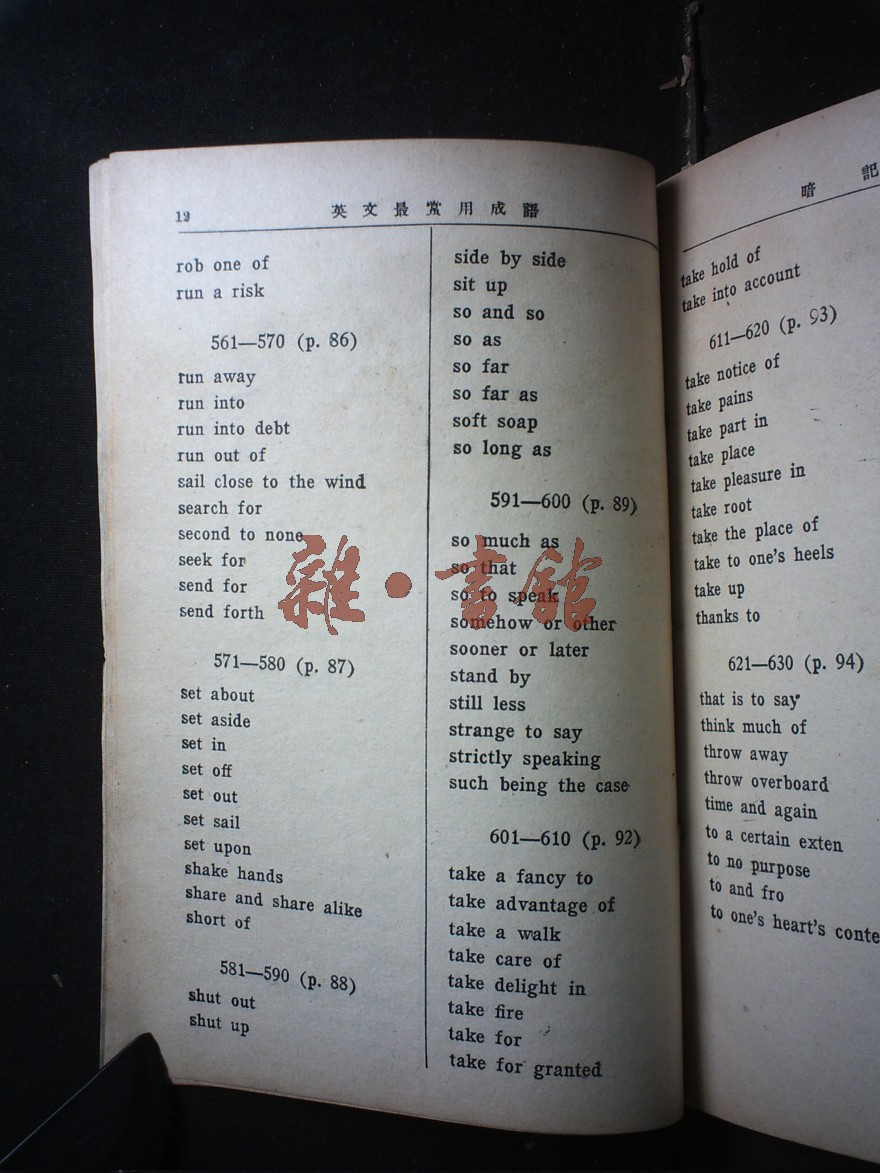 12
英文最常用成語
rob one of
run a risk
561—570 (p. 86)
run away
run into
run into debt
run out of
sail close to the wind
search for
second to none
seek for
send for
send forth
571—580 (p. 87)
set about
set aside
set in
set off
set out
set sail
set upon
shake hands
share and share alike
short of
581—590 (p. 88)
shut out
shut up
side by side
sit up
so and so
so as
so far
so far as
soft soap
so long as
591—600 (p. 89)
so much as
so that
so to speak
somehow or other
sooner or later
stand by
still less
strange to say
strictly speaking
such being the case
601—610 (p. 92)
take a fancy to
take advantage of
take a walk
take care of
take delight in
take fire
take for
take for granted
暗記
take hold of
take into account
611—620 (p. 93)
take notice of
take pains
take part in
take place
take pleasure in
take root
take the place of
take to one's heels
take up
thanks to
621—630 (p. 94)
that is to say
think much of
throw away
throw overboard
time and again
to a certain exten
to no purpose
to and fro
to one's heart's conte
雜·書館